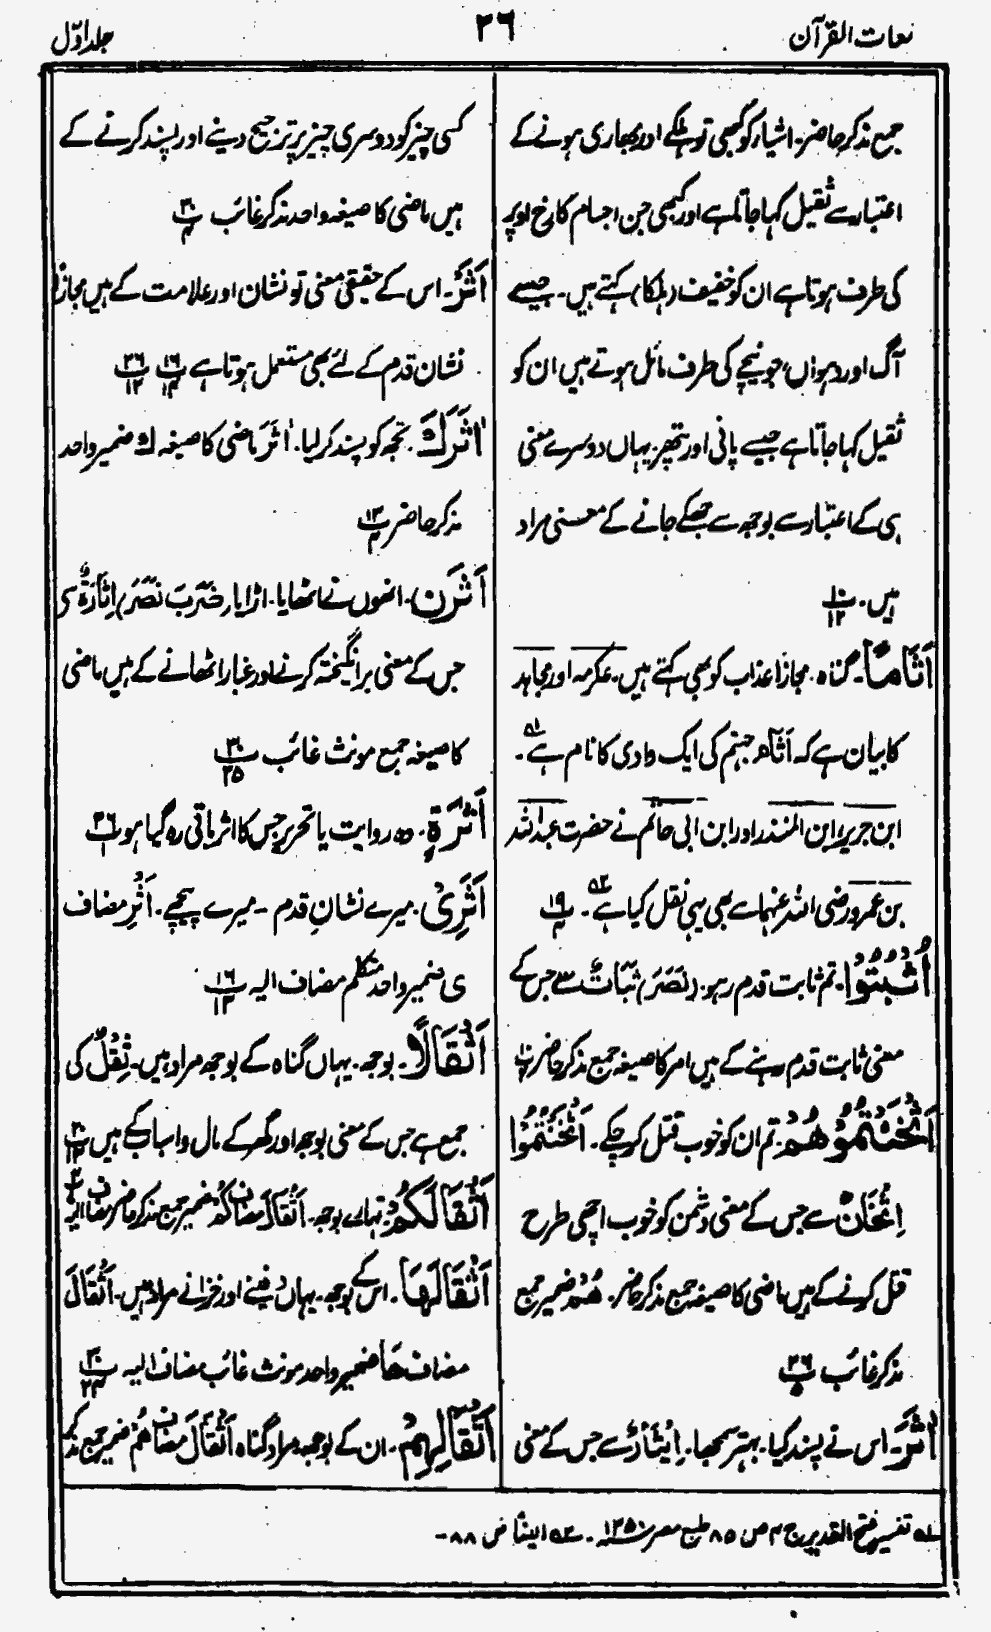 لغات القرآن
۲۶
جلد اوّل
جمع مذکر حاضر۔ اشیاء کو کبھی تو ہلکے اور بھاری ہونے کے
اعتبار سے ثقیل کہا جاتا ہے اور کبھی جن اجسام کا رخ اوپر
کی طرف ہوتا ہے ان کو خفیف (ہلکا) کہتے ہیں۔ جیسے
آگ اور دہواں، جو نیچے کی طرف مائل ہوتے ہیں ان کو
ثقیل کہا جاتا ہے جیسے پانی اور پتھر یہاں دوسرے معنی
ہی کے اعتبار سے بوجھ سے جھکے جانے کے معنی مراد
ہیں۔ ۱۰/۱۲
اَثَامًا۔ گناہ۔ مجازاً عذاب کو بھی کہتے ہیں۔ عکرمہ اور مجاہد
کا بیان ہے کہ اَثَام جہنم کی ایک وادی کا نام ہے ؎۱۔
ابن جریر، ابن المنذر اور ابن ابی حاتم نے حضرت عبداللہ
بن عمرو رضی اللہ عنہما سے بھی یہی نقل کیا ہے ؎۲۔ ۱۹/۴
اُثْبُتُوْا۔ تم ثابت قدم رہو۔ (نَصَرَ) ثَبَاتٌ سے جس کے
معنی ثابت قدم رہنے کے ہیں امر کا صیغہ جمع مذکر حاضر
اَثْخَنْتُمُوْهُمْ۔ تم ان کو خوب قتل کر چکے۔ اَثْخَنْتُمُوْا
اِثْخَانٌ سے جس کے معنی دشمن کو خوب اچھی طرح
قتل کرنے کے ہیں ماضی کا صیغہ جمع مذکر حاضر۔ هُمْ ضمیر جمع
مذکر غائب ۲۶/۵
اٰثَرَ۔ اس نے پسند کیا۔ بہتر سمجھا۔ اِیْثَارٌ سے جس کے معنی
کسی چیز کو دوسری چیز پر ترجیح دینے اور پسند کرنے کے
ہیں ماضی کا صیغہ واحد مذکر غائب ۳۰/۴
اَثَرِ۔ اس کے حقیقی معنی تو نشان اور علامت کے ہیں مجازاً
نشان قدم کے لئے بھی مستعمل ہوتا ہے ۱۶/۱۴ ۲۶/۱۲
اٰثَرَكَ۔ تجھ کو پسند کر لیا۔ اٰثَرَ ماضی کا صیغہ ك ضمیر واحد
مذکر حاضر ۱۳/۴
اَثَرْنَ۔ انھوں نے اٹھایا۔ اڑایا (ضَرَبَ نَصَرَ) اِثَارَةٌ سے
جس کے معنی برانگیختہ کرنے اور غبار اٹھانے کے ہیں ماضی
کا صیغہ جمع مونث غائب ۳۰/۲۵
اَثٰرَةٍ۔ وہ روایت یا تحریر جس کا اثر باقی رہ گیا ہو ۲۶/۱
اَثَرِیْ۔ میرے نشانِ قدم۔ میرے پیچھے۔ اَثَرِ مضاف
ی ضمیر واحد متکلم مضاف الیہ ۱۶/۱۳
اَثْقَالًا۔ بوجھ۔ یہاں گناہ کے بوجھ مراد ہیں۔ ثِقْلٌ کی
جمع ہے جس کے معنی بوجھ اور گھر کے مال و اسباب کے ہیں ۲۰/۱۳
اَثْقَالَكُمْ۔ تمہارے بوجھ۔ اَثْقَالَ مضاف كُمْ ضمیر جمع مذکر حاضر مضاف الیہ
اَثْقَالَهَا۔ اس کے بوجھ۔ یہاں دفینے اور خزانے مراد ہیں۔ اَثْقَالَ
مضاف هَا ضمیر واحد مونث غائب مضاف الیہ ۳۰/۲۴
اَثْقَالِهِمْ۔ ان کے بوجھ مراد گناہ اَثْقَالَ مضاف هُمْ ضمیر جمع مذکر
؎۱ تفسیر فتح القدیر ج ۴ ص ۸۵ طبع مصر ۱۳۵۰ھ۔ ؎۲ ایضاً ص ۸۸۔